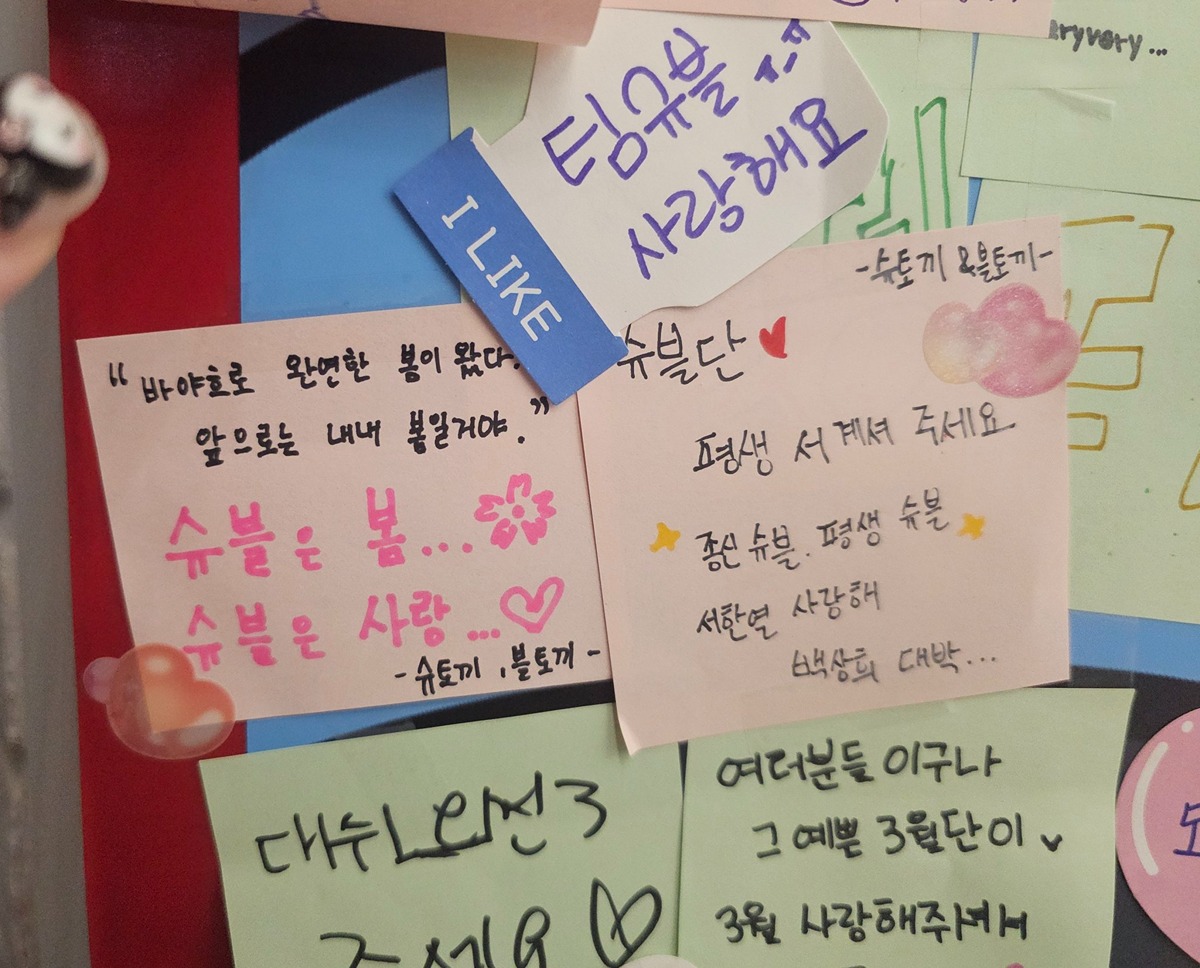 팀슈블
사랑해요
I LIKE
-슈토끼 &블토끼-
슈블단
평생 서 계셔 주세요
종신 슈블. 평생 슈블
서한열 사랑해
백상희 대박...
"바야흐로 완연한 봄이 왔다.
앞으로는 내내 봄일거야."
슈블은 봄...
슈블은 사랑...
-슈토끼, 블토끼-
여러분들 이구나
그 예쁜 3월단이
3월 사랑해주셔서